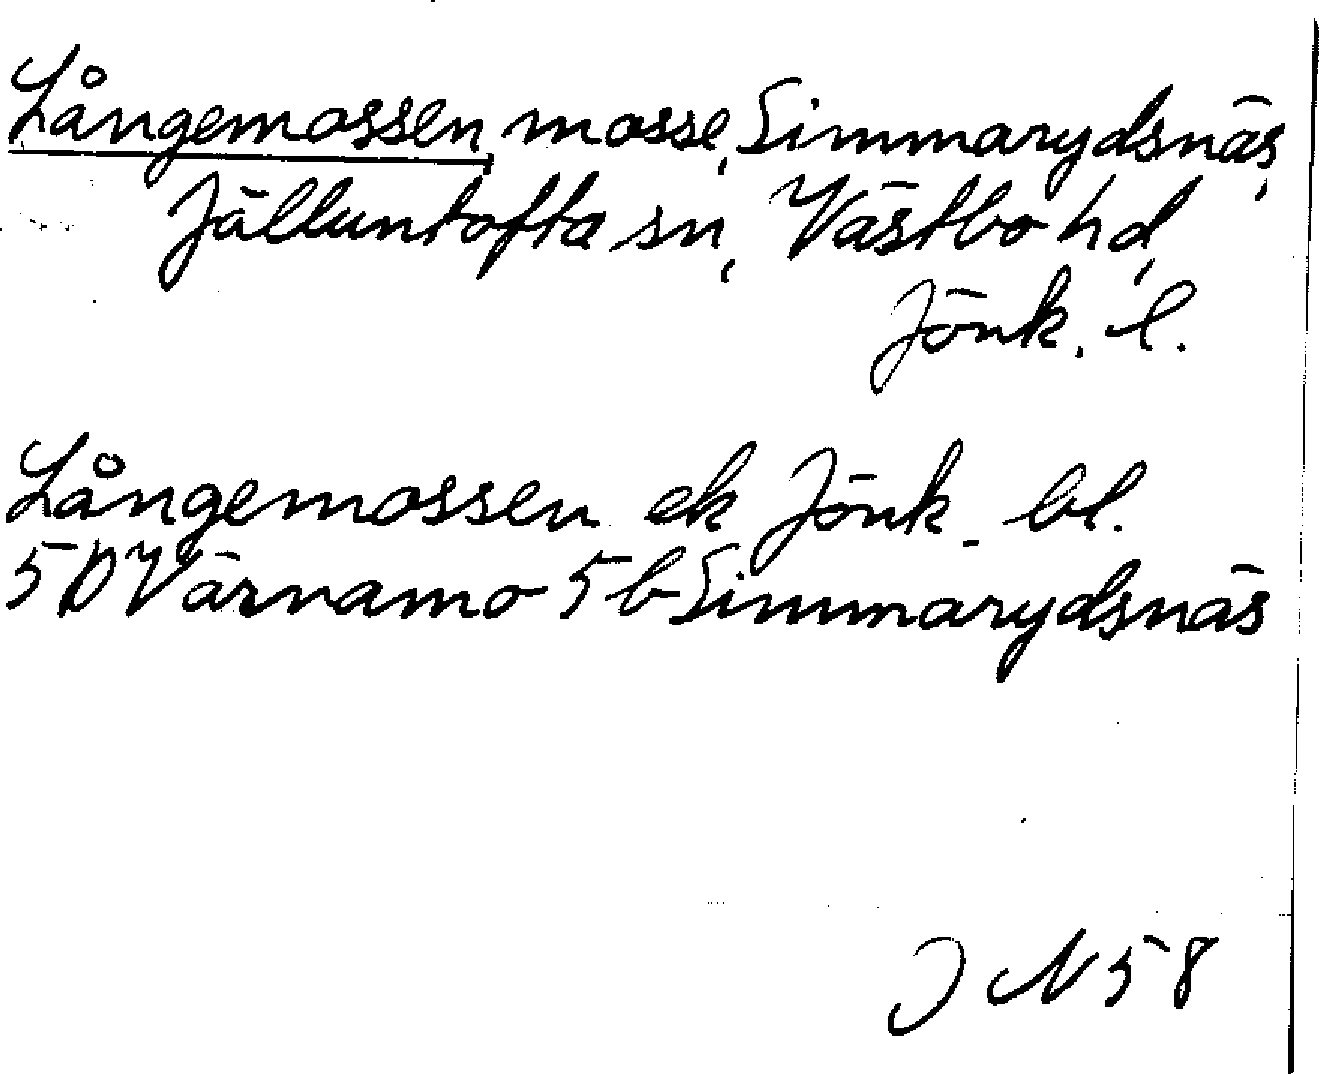 Långemossen, mosse, Simmarydsnäs,
Jälluntofta sn, Västbo hd,
Jönk. l.
Långemossen ek Jönk. bl.
5D Värnamo 5b Simmarydsnäs
J N 58